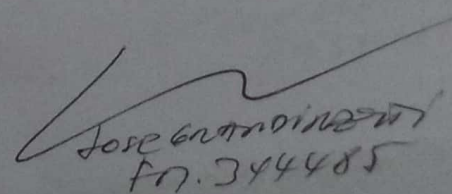 Jose Grandinetti
Fn. 344485